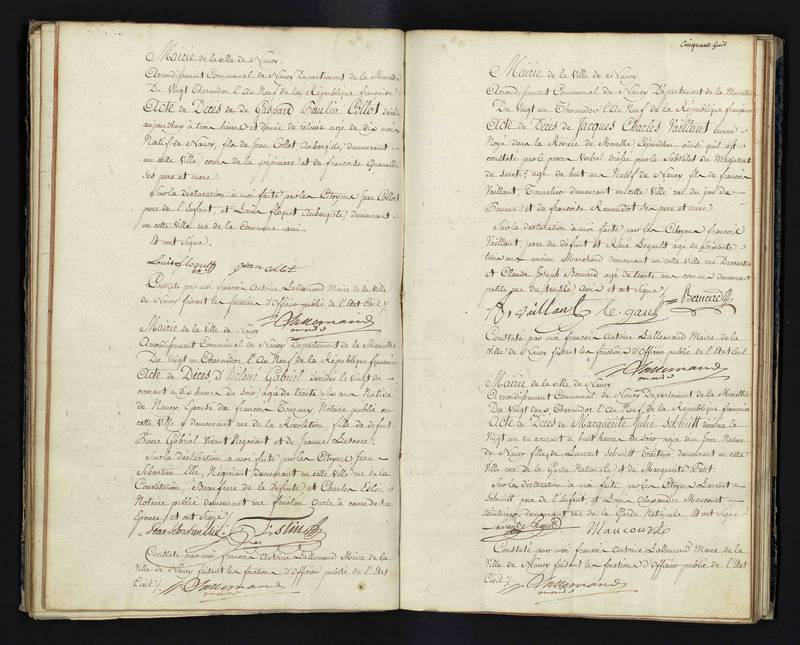 Mairie de la ville de Nancy
Arrondissement Communal de Nancy Département de la Meurthe
Du Vingt Thermidor l'An Neuf de la République française
Acte de Décès de de Gaspard Paulin Collot décédé
aujourdhuy à trois heures et demie de relevée agé de dix mois
Natif de Nancy, fils de Jean Collot Aubergiste, demeurant
en cette Ville de la pépiniere et de francoise
ses pere et mere.
Sur la déclaration à moi faite par les Citoyens Jean Collot
pere de l'Enfant, et Louis floquet Aubergiste, demeurant
en cette Ville rue de la Commune ami.
Et ont signé.
Louis floquet Jean Collot
Constaté par moi françois Antoine Lallemand Maire de la Ville
de Nancy faisant les fonctions d'Officier public de l'Etat Civil
Lallemand
Mairie de la Ville de Nancy
Arrondissement Communal de Nancy Département de la Meurthe
Du Vingt un Thermidor l'An Neuf de la République française
Acte de Décès d' Gabriel décédée le vingt du
courant à dix heures du soir, agée de trente six ans Native
de Nancy, Epouse de françois Notaire public en
cette Ville y demeurant rue de la Révolution, fille de défunt
Pierre Gabriel Vivant Négociant et de Jeanne
Sur la déclaration à moi faite par les Citoyens Jean
Sébastien Elie, Négociant demeurant en cette Ville rue de la
Constitution, Beaufrere de la défunte et Charles
Notaire public demeurant rue Oncle à cause de son
Epouse, et ont signé
Jean Sébastien Elie
Constaté par moi françois Antoine Lallemand Maire de la
Ville de Nancy faisant les fonctions d'Officier public de l'Etat
Civil
Lallemand
Cinquante huit
Mairie de la Ville de Nancy
Arrondissement Communal de Nancy Département de la Meurthe
Du Vingt un Thermidor l'An Neuf de la République française
Acte de Décès de Jacques Charles Vaillant trouvé
Noyé dans la Riviere de Meurthe ainsi qu'il est
constaté par le procès Verbal dressé par le Substitut du Magistrat
de sureté, agé de huit ans Natif de Nancy fils de francois
Vaillant Tonnelier demeurant en cette Ville rue du jeu de
Paume et de francoise ses pere et mere
Sur la déclaration à moi faite par les Citoyens francois
Vaillant, pere du défunt et René Legault agé de soixante
trois ans ancien Marchand demeurant en cette Ville rue
et Claude Joseph Bernard agé de trente ans demeurant
petite rue Amis et ont signé
Vaillant le gault Bernard
Constaté par moi françois Antoine Lallemand Maire de la
Ville de Nancy faisant les fonctions d'Officier public de l'Etat Civil
Lallemand
Mairie de la Ville de Nancy
Arrondissement Communal de Nancy Département de la Meurthe
Du Vingt deux Thermidor l'An Neuf de la République française
Acte de Décès de Marguerite Julie Schmitt décédée le
Vingt un du courant à huit heures du soir agée d'un jour Native
de Nancy fille de Laurent Schmitt Traiteur demeurant en cette
Ville rue de la Garde Nationale et de Marguerite
Sur la déclaration à moi faite par les Citoyens Laurent
Schmitt pere de l'Enfant et Louis Alexandre Maucourt
teinturier demeurant rue de la Garde Nationale Et ont signé
Laurent Schmitt Maucourt
Constaté par moi francois Antoine Lallemand Maire de la
Ville de Nancy faisant les fonctions d'Officier public de l'Etat
Civil
Lallemand